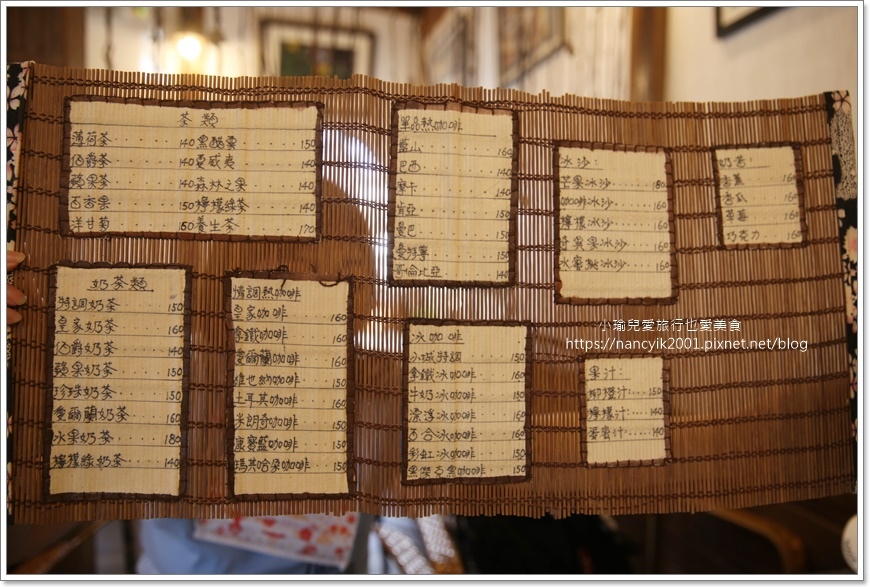 茶類
薄荷茶‥‥140 黑醋栗‥‥150
伯爵茶‥‥140 夏威夷‥‥140
蘋果茶‥‥140 森林之果‥140
百香果‥‥150 檸檬綠茶‥140
洋甘菊‥‥150 養生茶‥‥170
奶茶類
特調奶茶‥‥150
皇家奶茶‥‥160
伯爵奶茶‥‥140
蘋果奶茶‥‥150
珍珠奶茶‥‥150
愛爾蘭奶茶‥160
水果奶茶‥‥180
檸檬綠奶茶‥140
單品熱咖啡
藍山‥‥160
巴西‥‥140
摩卡‥‥140
肯亞‥‥150
曼巴‥‥150
曼特寧‥‥150
哥倫比亞‥‥140
情調熱咖啡
皇家咖啡‥‥160
拿鐵咖啡‥‥160
愛爾蘭咖啡‥160
維也納咖啡‥150
土耳其咖啡‥160
米朗奇咖啡‥150
康寶藍咖啡‥150
瑪其哈朵咖啡‥150
冰咖啡
小城特調‥‥150
拿鐵冰咖啡‥160
牛奶冰咖啡‥150
漂浮冰咖啡‥160
百合冰咖啡‥160
彩虹冰咖啡‥150
黑傑克冰咖啡‥150
冰沙:
芒果冰沙‥‥180
咖啡冰沙‥‥160
檸檬冰沙‥‥160
奇異果冰沙‥160
水蜜桃冰沙‥160
奶昔:
香蕉‥‥160
香瓜‥‥160
草莓‥‥160
巧克力‥‥160
果汁:
柳橙汁‥‥150
檸檬汁‥‥140
蛋蜜汁‥‥140
小瑜兒愛旅行也愛美食
https://nancyik2001.pixnet.net/blog